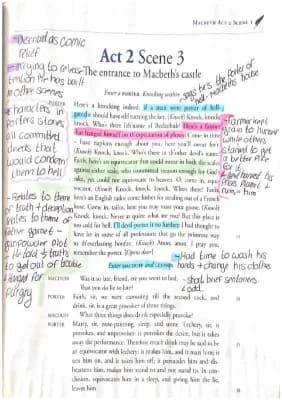 MACBETH ACT 2 SCENE 3
Act 2 Scene 3
The entrance to Macbeth's castle
Enter a PORTER. Knocking within
- Described as comic
relief
- trying to release
tension that has built
in other scenes
- characters in
porters stories
all committed
deeds that
would condem
them to hell
- Relates to theme
of truth + deception
- gunpowder plot
to get out of trouble
says he's the porter of
hell - Macbeth's house
- Farmer kept
grain to humour
while others
starved to get
a better price
for it
- Had time to wash his
hands + change his clothes
- short, brief sentences
↓ odd
PORTER Here's a knocking indeed: if a man were porter of hell-
gate, he should have old turning the key. (Knock) Knock,
knock, knock. Who's there i'th'name of Beelzebub? Here's a farmer
that hanged himself on th'expectation of plenty. Come in time
– have napkins enough about you, here you'll sweat for't.
(Knock) Knock, knock. Who's there in th'other devil's name?
Faith, here's an equivocator that could swear in both the scales
against either scale, who committed treason enough for God's
sake, yet could not equivocate to heaven. O, come in, equi-
vocator. (Knock) Knock, knock, knock. Who's there? Faith,
here's an English tailor come hither for stealing out of a French
hose. Come in, tailor, here you may roast your goose. (Knock)
Knock, knock. Never at quiet: what are you? But this place is
too cold for hell. I'll devil-porter it no further: I had thought to
have let in some of all professions that go the primrose way
to th'everlasting bonfire. (Knock) Anon, anon. I pray you,
remember the porter. [Opens door]
Enter MACDUFF and LENNOX
MACDUFF Was it so late, friend, ere you went to bed,
That you do lie so late?
PORTER Faith, sir, we were carousing till the second cock, and
drink, sir, is a great provoker of three things.
MACDUFF What three things does drink especially provoke?
PORTER Marry, sir, nose-painting, sleep, and urine. Lechery, sir, it
provokes, and unprovokes: it provokes the desire, but it takes
away the performance. Therefore much drink may be said to be
an equivocator with lechery: it makes him, and it mars him; it
sets him on, and it takes him off; it persuades him and dis-
heartens him, makes him stand to and not stand to. In con-
clusion, equivocates him in a sleep, and giving him the lie,
leaves him.